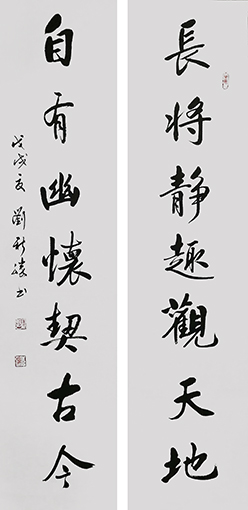 長将静趣觀天地
自有幽懷契古今
戊戌夏 劉新德書